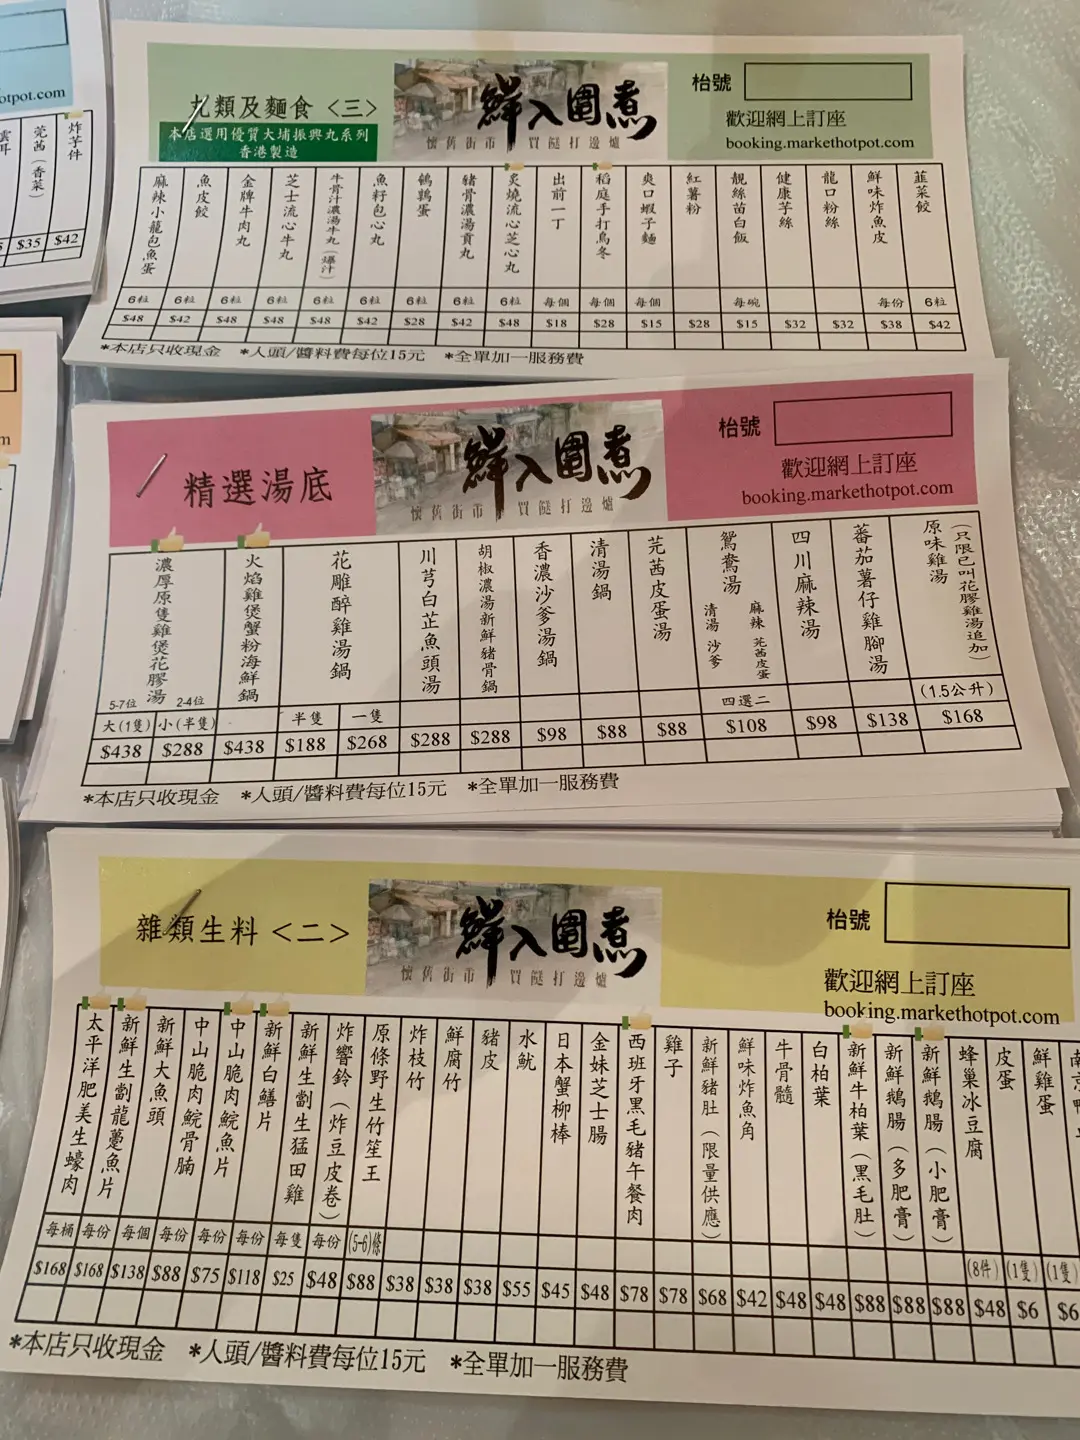 otpot.com
炸芋件
芫茜（香菜）
雲耳
$35
$42
m
丸類及麵食 <三>
本店選用優質大埔振興丸系列
香港製造
鮮入圍煮
懷舊街市 買餸打邊爐
枱號
歡迎網上訂座
booking.markethotpot.com
麻辣小龍包魚蛋 6粒 $48
魚皮餃 6粒 $42
金牌牛肉丸 6粒 $48
芝士流心牛丸 6粒 $48
牛骨汁濃湯牛丸（爆汁） 6粒 $48
魚籽包心丸 6粒 $42
鵪鶉蛋 6粒 $28
豬骨濃湯貢丸 6粒 $42
炙燒流心芝心丸 6粒 $48
出前一丁 每個 $18
稻庭手打烏冬 每個 $28
爽口蝦子麵 每個 $15
紅薯粉 $28
靚絲苗白飯 每碗 $15
健康芋絲 $32
龍口粉絲 $32
鮮味炸魚皮 每份 $38
韮菜餃 6粒 $42
*本店只收現金 *人頭/醬料費每位15元 *全單加一服務費
精選湯底
鮮入圍煮
懷舊街市 買餸打邊爐
枱號
歡迎網上訂座
booking.markethotpot.com
濃厚原隻雞煲花膠湯 5-7位 2-4位 大(1隻) 小(半隻) $438 $288
火焰雞煲蟹粉海鮮鍋 $438
花雕醉雞湯鍋 半隻 一隻 $188 $268
川芎白芷魚頭湯 $288
胡椒濃湯新鮮豬骨鍋 $288
香濃沙爹湯鍋 $98
清湯鍋 $88
芫茜皮蛋湯 $88
鴛鴦湯 清湯 沙爹 麻辣 芫茜皮蛋 四選二 $108
四川麻辣湯 $98
蕃茄薯仔雞腳湯 $138
原味雞湯（只限已叫花膠雞湯追加） (1.5公升) $168
*本店只收現金 *人頭/醬料費每位15元 *全單加一服務費
雜類生料 <二>
鮮入圍煮
懷舊街市 買餸打邊爐
枱號
歡迎網上訂座
booking.markethotpot.com
太平洋肥美生蠔肉 每桶 $168
新鮮生劏龍躉魚片 每份 $168
新鮮大魚頭 每個 $138
中山脆肉鯇骨腩 每份 $88
中山脆肉鯇魚片 每份 $75
新鮮白鱔片 每份 $118
新鮮生劏生猛田雞 每隻 $25
炸響鈴（炸豆皮卷） 每份 $48
原條野生竹笙王 (5-6)條 $88
炸枝竹 $38
鮮腐竹 $38
豬皮 $38
水魷 $55
日本蟹柳棒 $45
金妹芝士腸 $48
西班牙黑毛豬午餐肉 $78
雞子 $78
新鮮豬肚（限量供應） $68
鮮味炸魚角 $42
牛骨髓 $48
白柏葉 $48
新鮮牛柏葉（黑毛肚） $88
新鮮鵝腸（多肥膏） $88
新鮮鵝腸（小肥膏） $88
蜂巢冰豆腐 (8件) $48
皮蛋 (1隻) $6
鮮雞蛋 (1隻) $6
*本店只收現金 *人頭/醬料費每位15元 *全單加一服務費